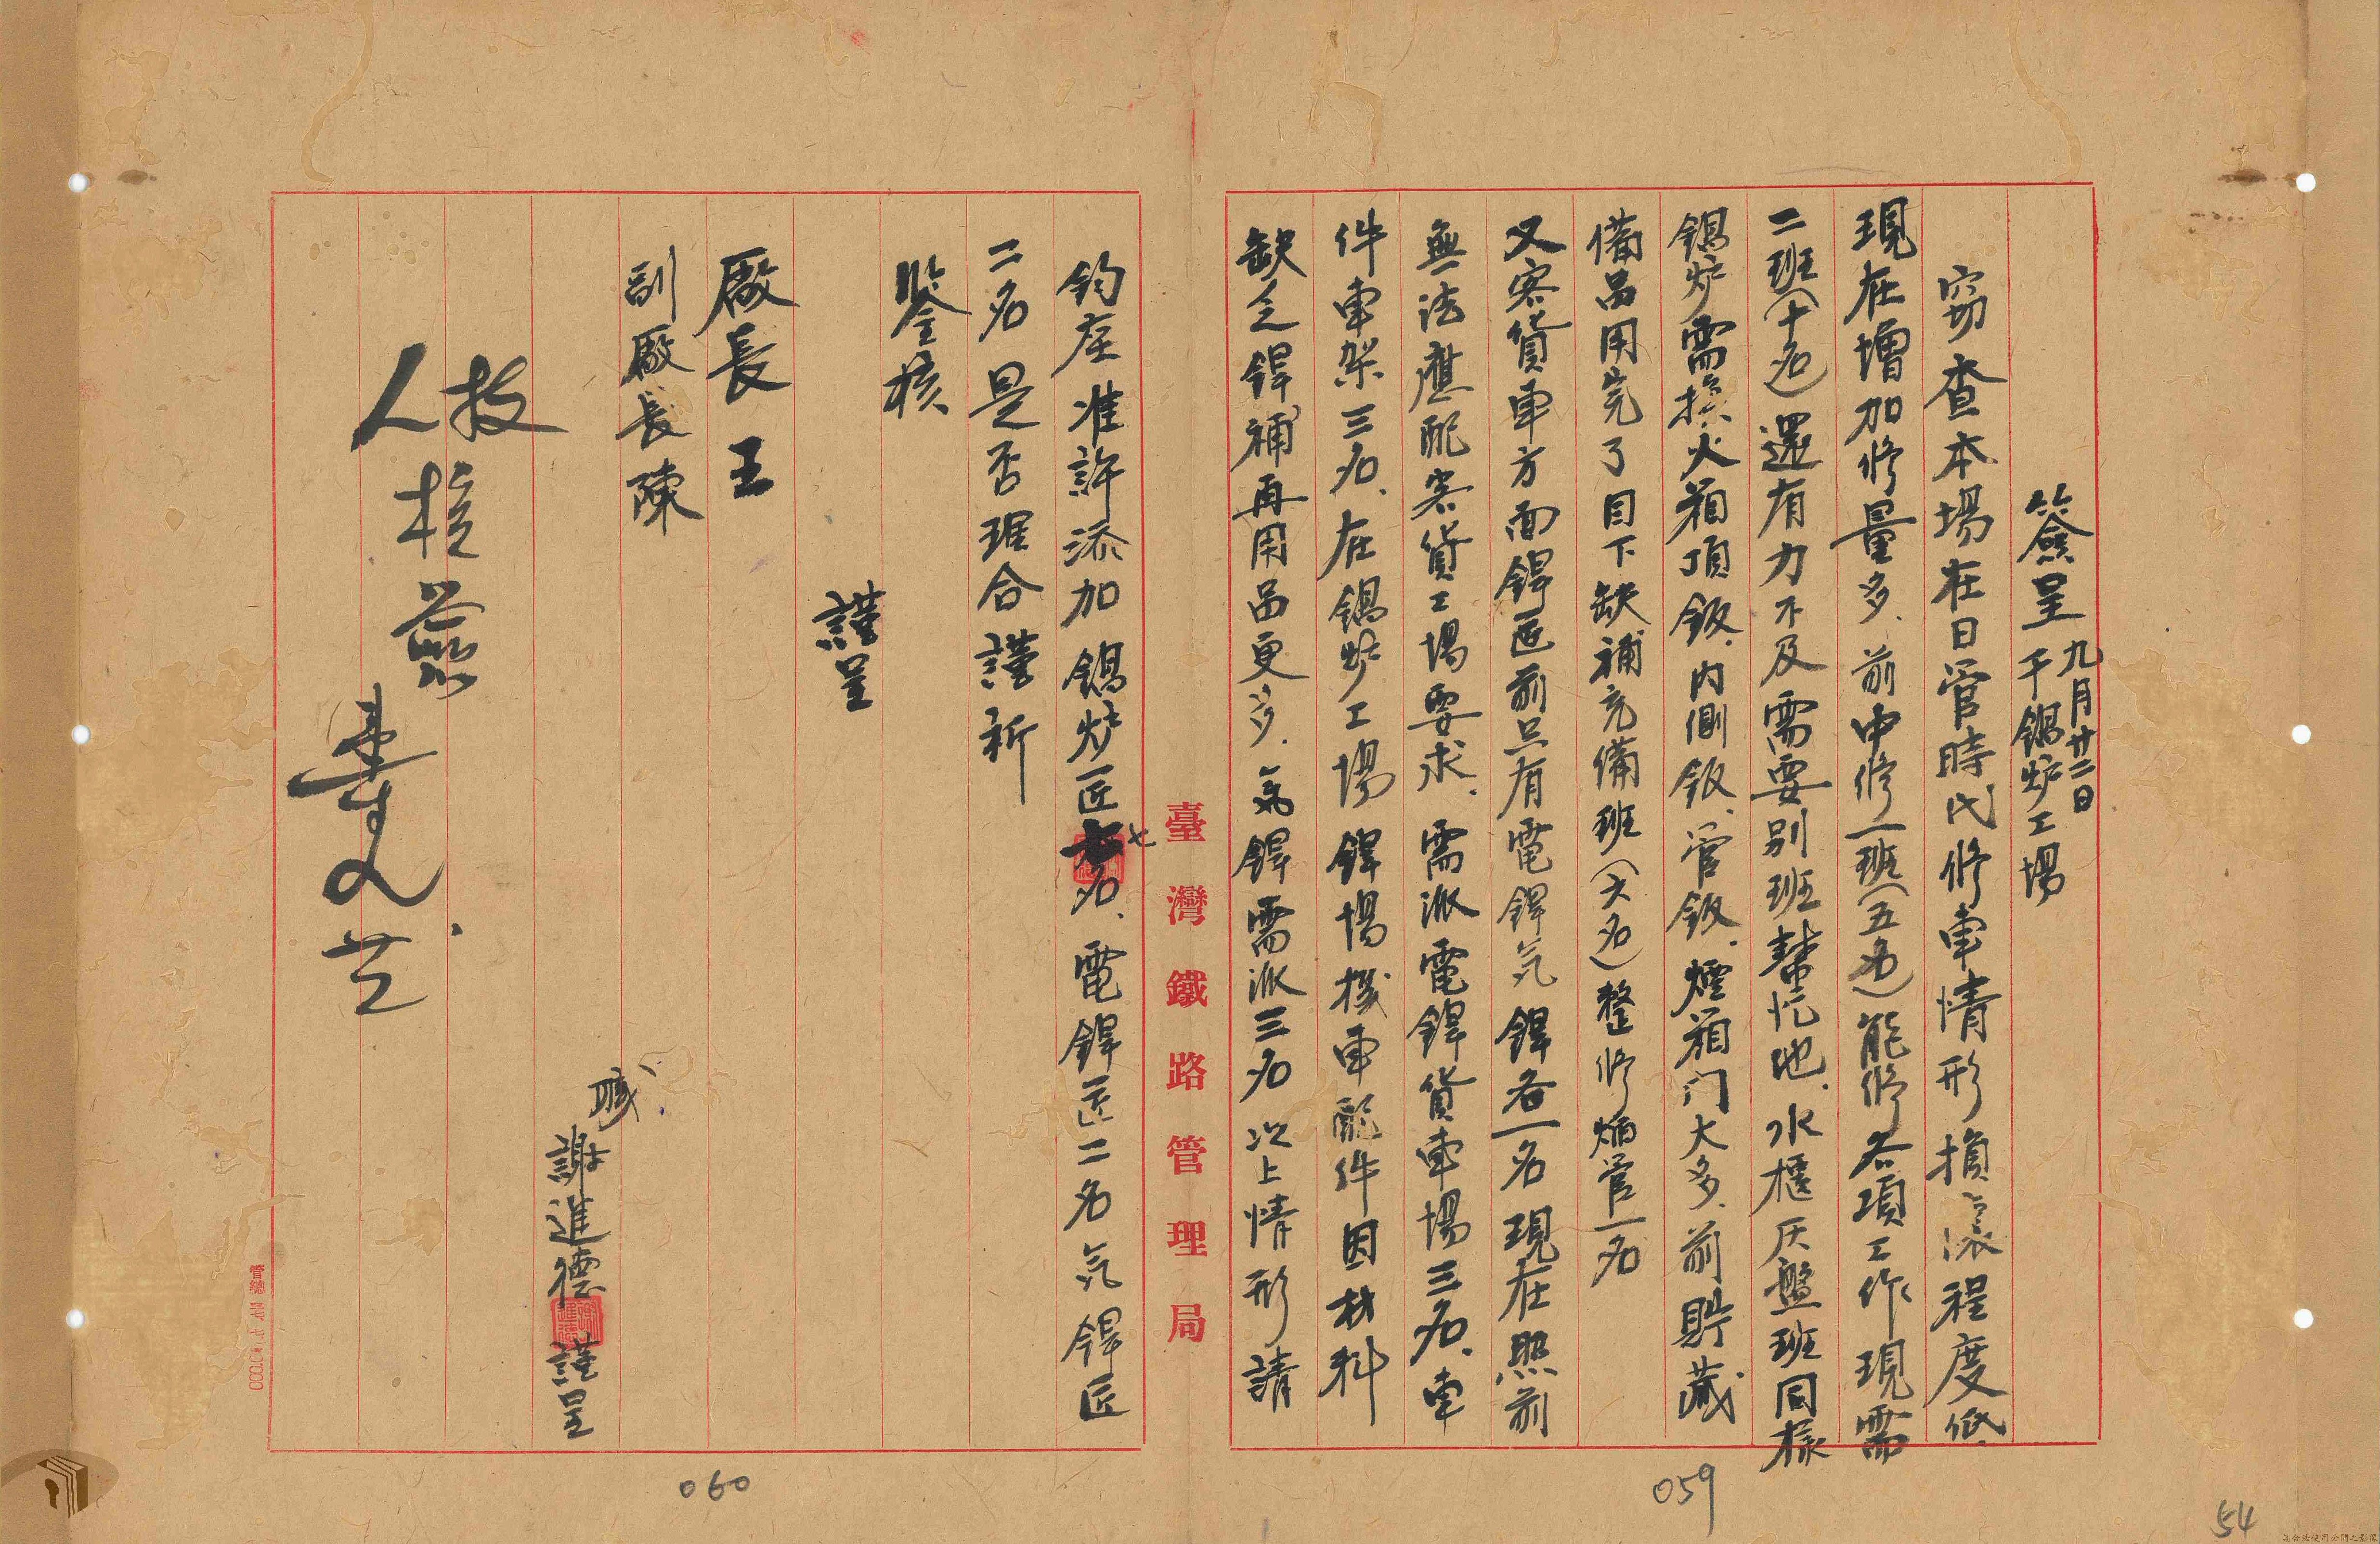 簽呈 九月廿二日
于鍋炉工場
窃查本場在日管時代修車情形損壞程度低
現在增加修量多、前中修一班(五名)能修各項工作現需
二班(十名)還有力不及需要别班幫忙他、水櫃灰盤班同樣
鍋炉需換火箱頂鈑、内側鈑、管鈑、煙箱门大多、前貯藏
備品用完了目下缺補充備班(六名)整修焔管一名
又客貨車方面銲匠前只有電銲気銲各一名現在照前
無法應配客貨工場要求、需派電銲貨車場三名、車
件車架三名、在鍋炉工場銲場機車配件因材料
缺乏銲補再用品更多、氣銲需派三名以上情形請
鈞座准許添加鍋炉匠七名、電銲匠二名気銲匠
二名是否珺合謹祈
鑒核
謹呈
廠長王
副廠長陳
職
謝進德 謹呈
技
人
核
臺灣鐵路管理局
060
059
54